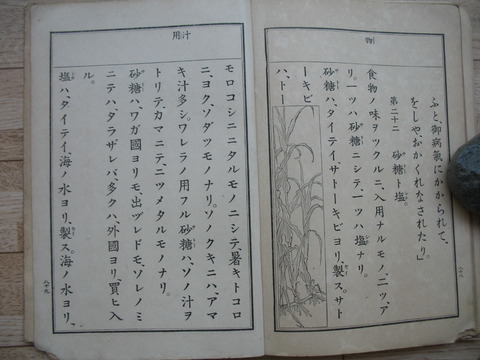 物
ふと、御病氣にかかられて、
をしや、おかくれなされたり」
第二十二 砂糖ト塩。
食物ノ味ヲツクルニ、入用ナルモノ、二ツ、ア
リ。一ツハ砂糖ニシテ、一ツハ塩ナリ。
砂糖ハ、タイテイ、サトーキビヨリ、製ス。サト
ーキビ
ハ、トー
汁用
モロコシニニタルモノニシテ、暑キトコロ
ニ、ヨク、ソダツモノナリ。ソノクキニハ、アマ
キ汁多シ。ワレラノ用フル砂糖ハ、ソノ汁ヲ
トリテ、カマニテ、ニツメタルモノナリ。
砂糖ハ、ワガ國ヨリモ、出ヅレドモ、ソレノミ
ニテハ、タラザレバ、多クハ、外國ヨリ、買ヒ入
ル。
塩ハ、タイテイ、海ノ水ヨリ、製ス。海ノ水ヨリ、
六十九